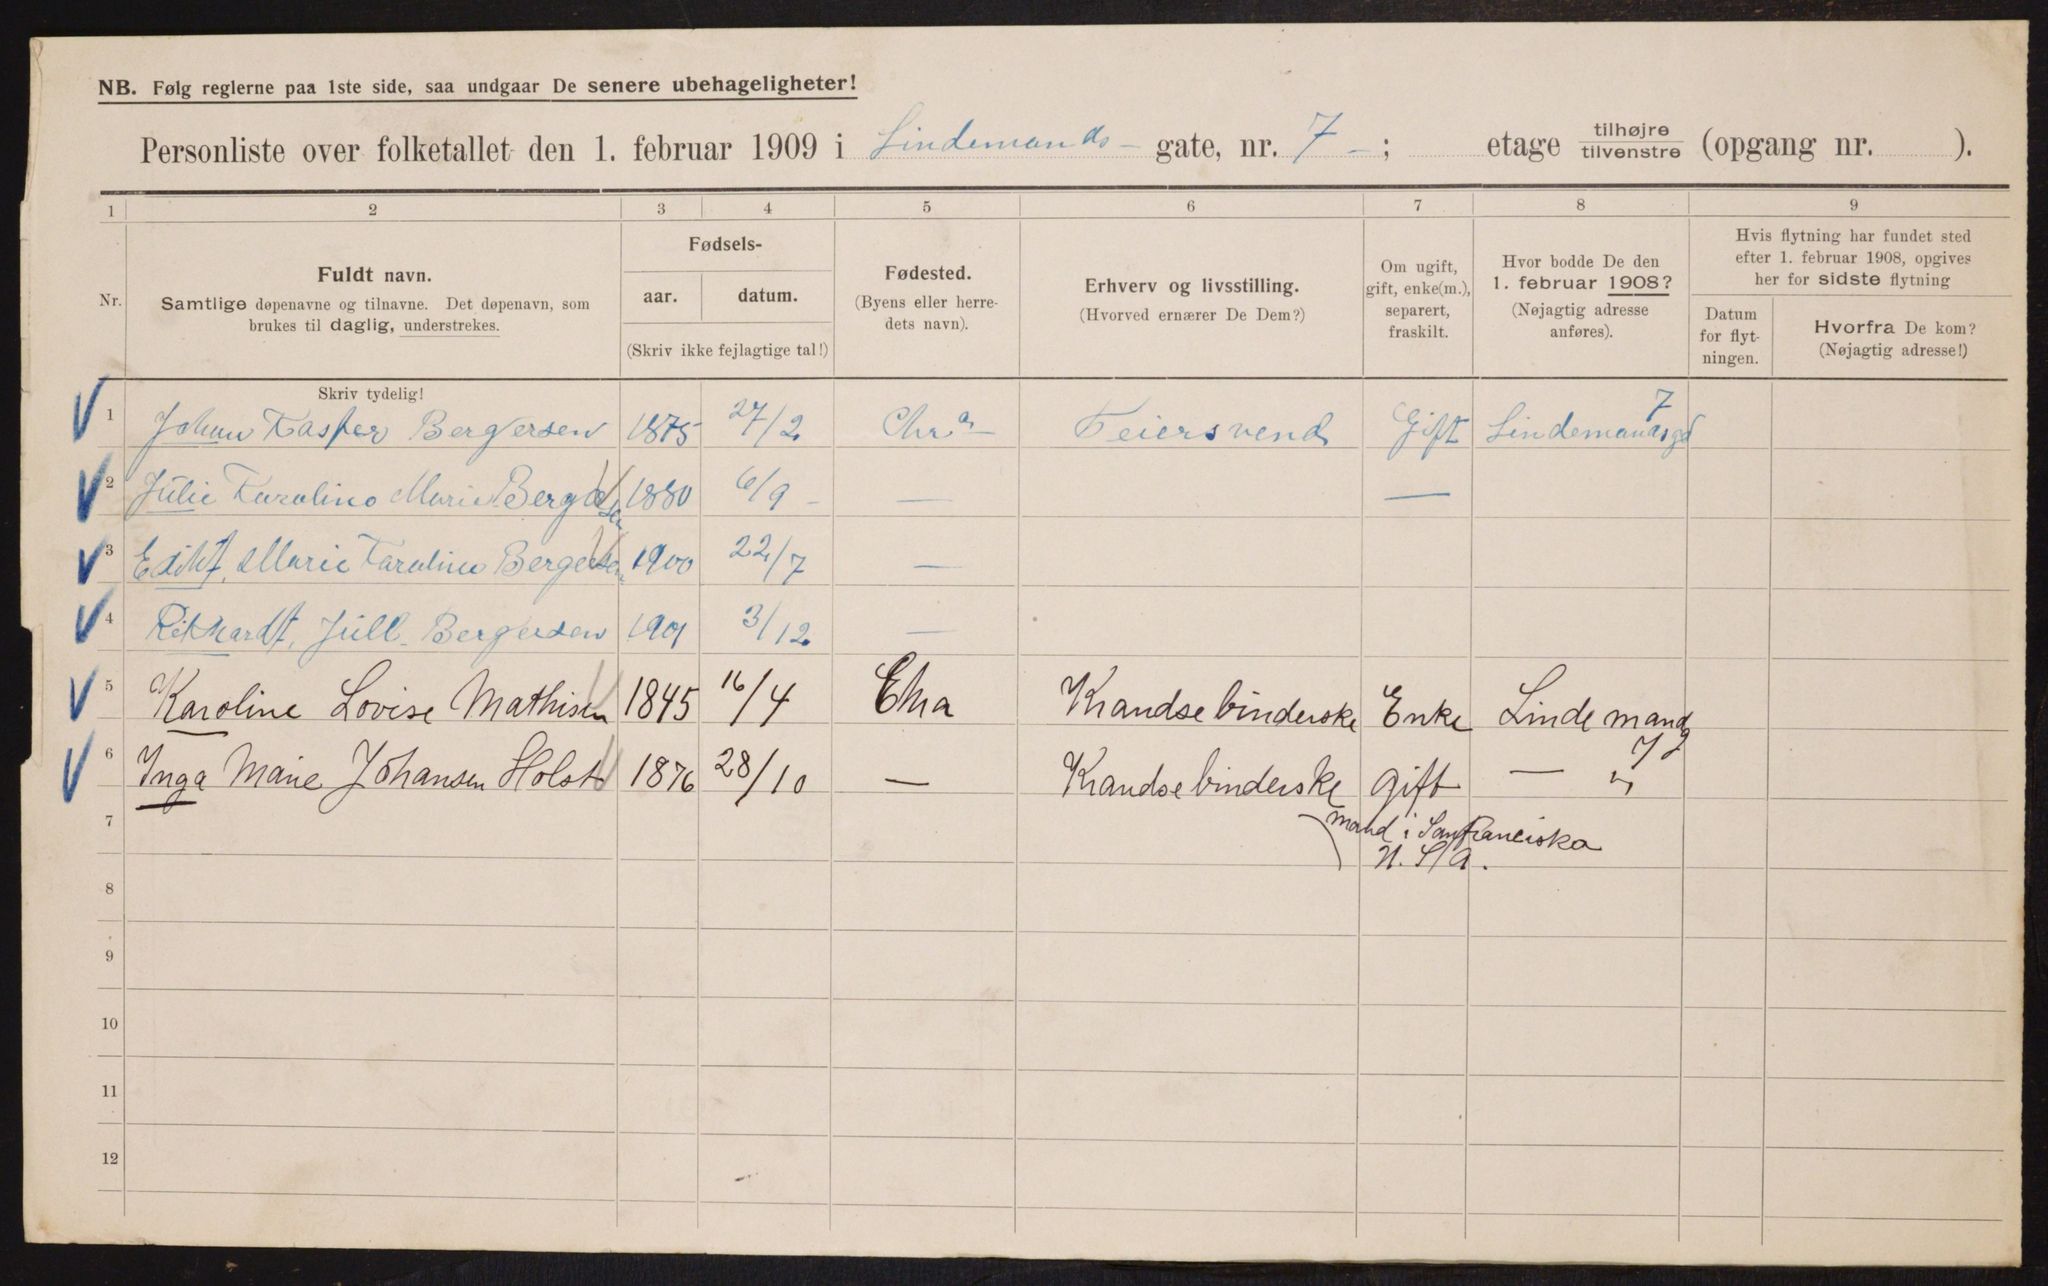 NB. Følg reglerne paa 1ste side, saa undgaar De senere ubehageligheter!
Personliste over folketallet den 1. februar 1909 i Lindemands- gate, nr. 7-; etage tilhøjre/tilvenstre (opgang nr. ).
1 2 3 4 5 6 7 8 9
Nr.
Fuldt navn.
Samtlige døpenavne og tilnavne. Det døpenavn, som
brukes til daglig, understrekes.
Fødsels-
aar. datum.
(Skriv ikke fejlagtige tal!)
Fødested.
(Byens eller herre-
dets navn).
Erhverv og livsstilling.
(Hvorved ernærer De Dem?)
Om ugift,
gift, enke(m.),
separert,
fraskilt.
Hvor bodde De den
1. februar 1908?
(Nøjagtig adresse
anføres).
Hvis flytning har fundet sted
efter 1. februar 1908, opgives
her for sidste flytning
Datum
for flyt-
ningen.
Hvorfra De kom?
(Nøjagtig adresse!)
Skriv tydelig!
1 Johan Kasper Bergersen 1875 27/2 Chra Feiersvend Gift Lindemandsgd 7
2 Julie Karoline Marie Bergersen 1880 6/9 — —
3 Edith Marie Karoline Bergersen 1900 22/7 —
4 Jull Bergersen 1901 3/12 —
5 Karoline Lovise Mathisen 1845 16/4 Chra Krandsebinderske Enke Lindemandg 7
6 Inga Marie Johansen Holst 1876 28/10 — Krandsebinderske gift — "
7 (mand i Sanfranciska
U. S. A.
8
9
10
11
12